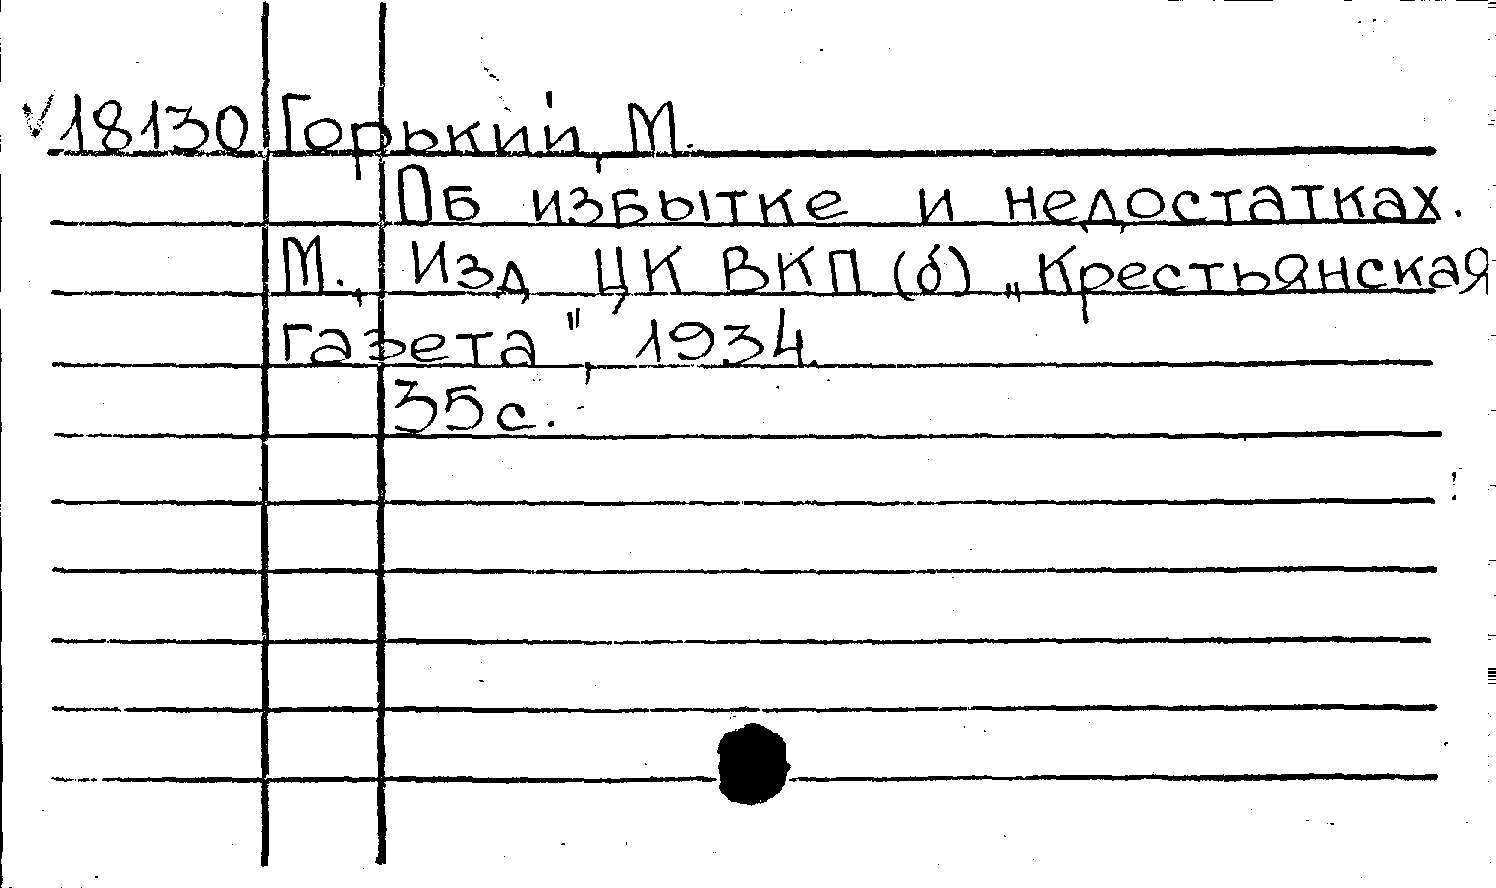 √18130 Горький, М.
Об избытке и недостатках.
М., Изд ЦК ВКП(б) „Крестьянская
газета", 1934.
35с.